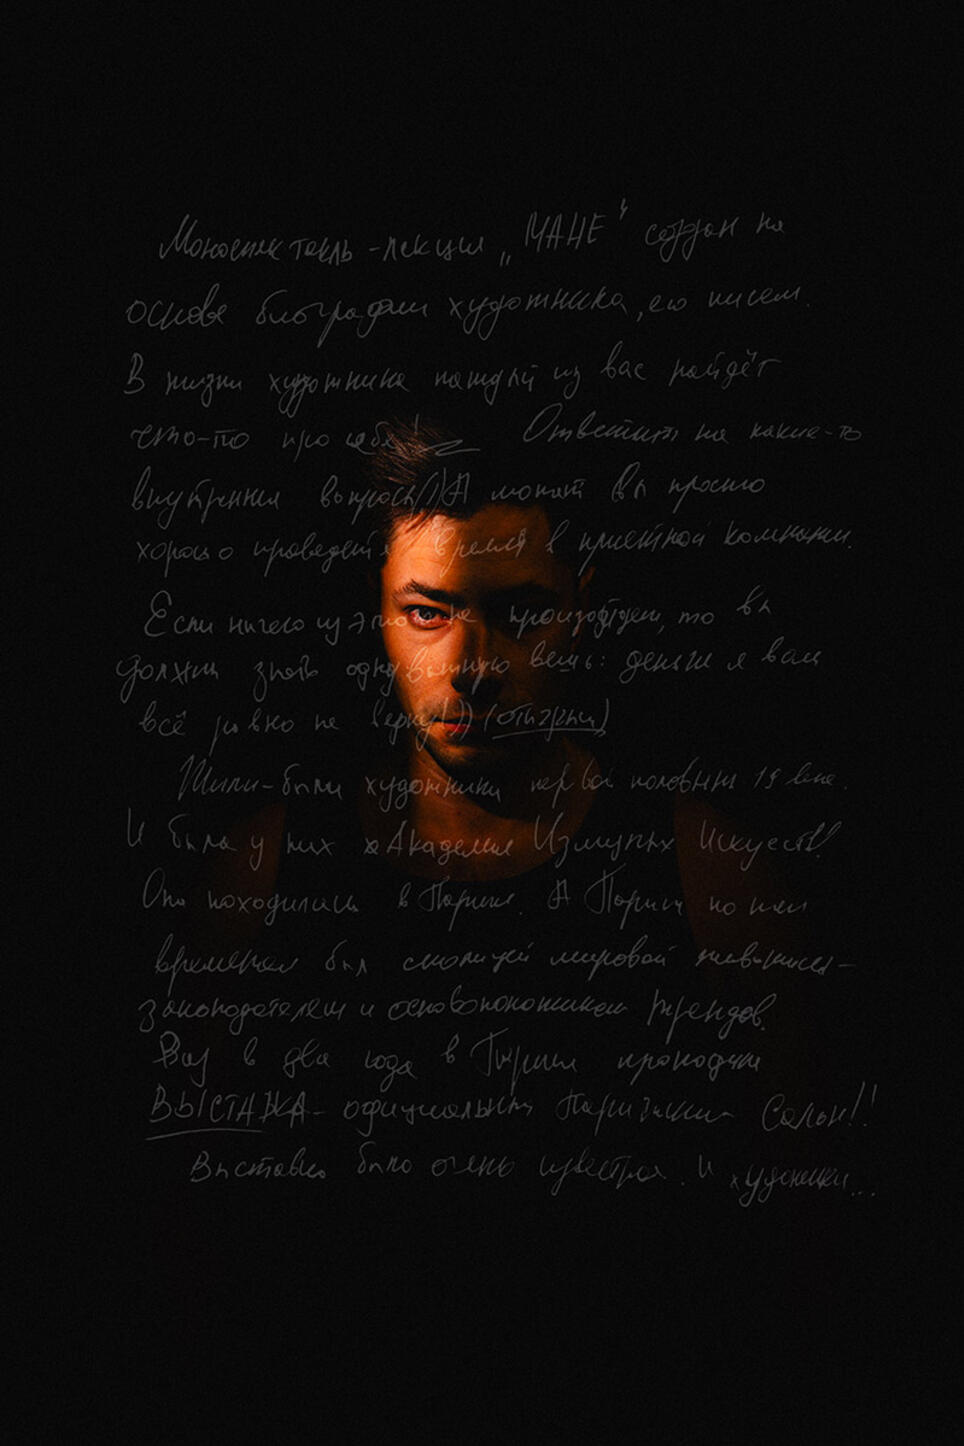 Моноспектакль-лекция „МАНЕ" создан на
основе биографии художника, его писем.
В жизни художника каждый из вас найдёт
что-то про себя! Ответит на какие-то
внутренние вопросы)) А может вы просто
хорошо проведёте время в приятной компании.
Если ничего из этого не произойдет, то вы
должны знать одну важную вещь: деньги я вам
всё равно не верну!)) (отбивка)
Жили-были художники первой половины 19 века.
И была у них Академия Изящных Искусств!
Она находилась в Париже. А Париж по тем
временам был столицей мировой живописи-
законодателем и основоположником трендов.
Раз в два года в Париже проходила
ВЫСТАВКА - официальный Парижский Салон!!
Выставка была очень известная. И художники...